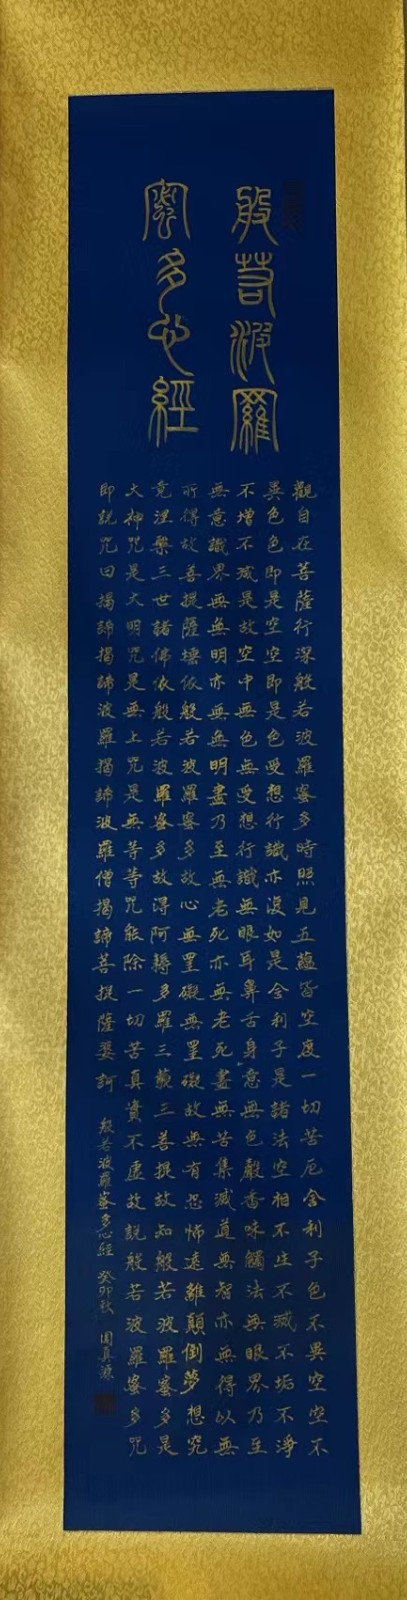 般若波羅
蜜多心經
觀自在菩薩行深般若波羅蜜多時照見五蘊皆空度一切苦厄舍利子色不異空空不
異色色即是空空即是色受想行識亦復如是舍利子是諸法空相不生不滅不垢不淨
不增不減是故空中無色無受想行識無眼耳鼻舌身意無色聲香味觸法無眼界乃至
無意識界無無明亦無無明盡乃至無老死亦無老死盡無苦集滅道無智亦無得以無
所得故菩提薩埵依般若波羅蜜多故心無罣礙無罣礙故無有恐怖遠離顛倒夢想究
竟涅槃三世諸佛依般若波羅蜜多故得阿耨多羅三藐三菩提故知般若波羅蜜多是
大神咒是大明咒是無上咒是無等等咒能除一切苦真實不虛故說般若波羅蜜多咒
即說咒曰揭諦揭諦波羅揭諦波羅僧揭諦菩提薩婆訶 般若波羅蜜多心經 癸卯秋 周真源